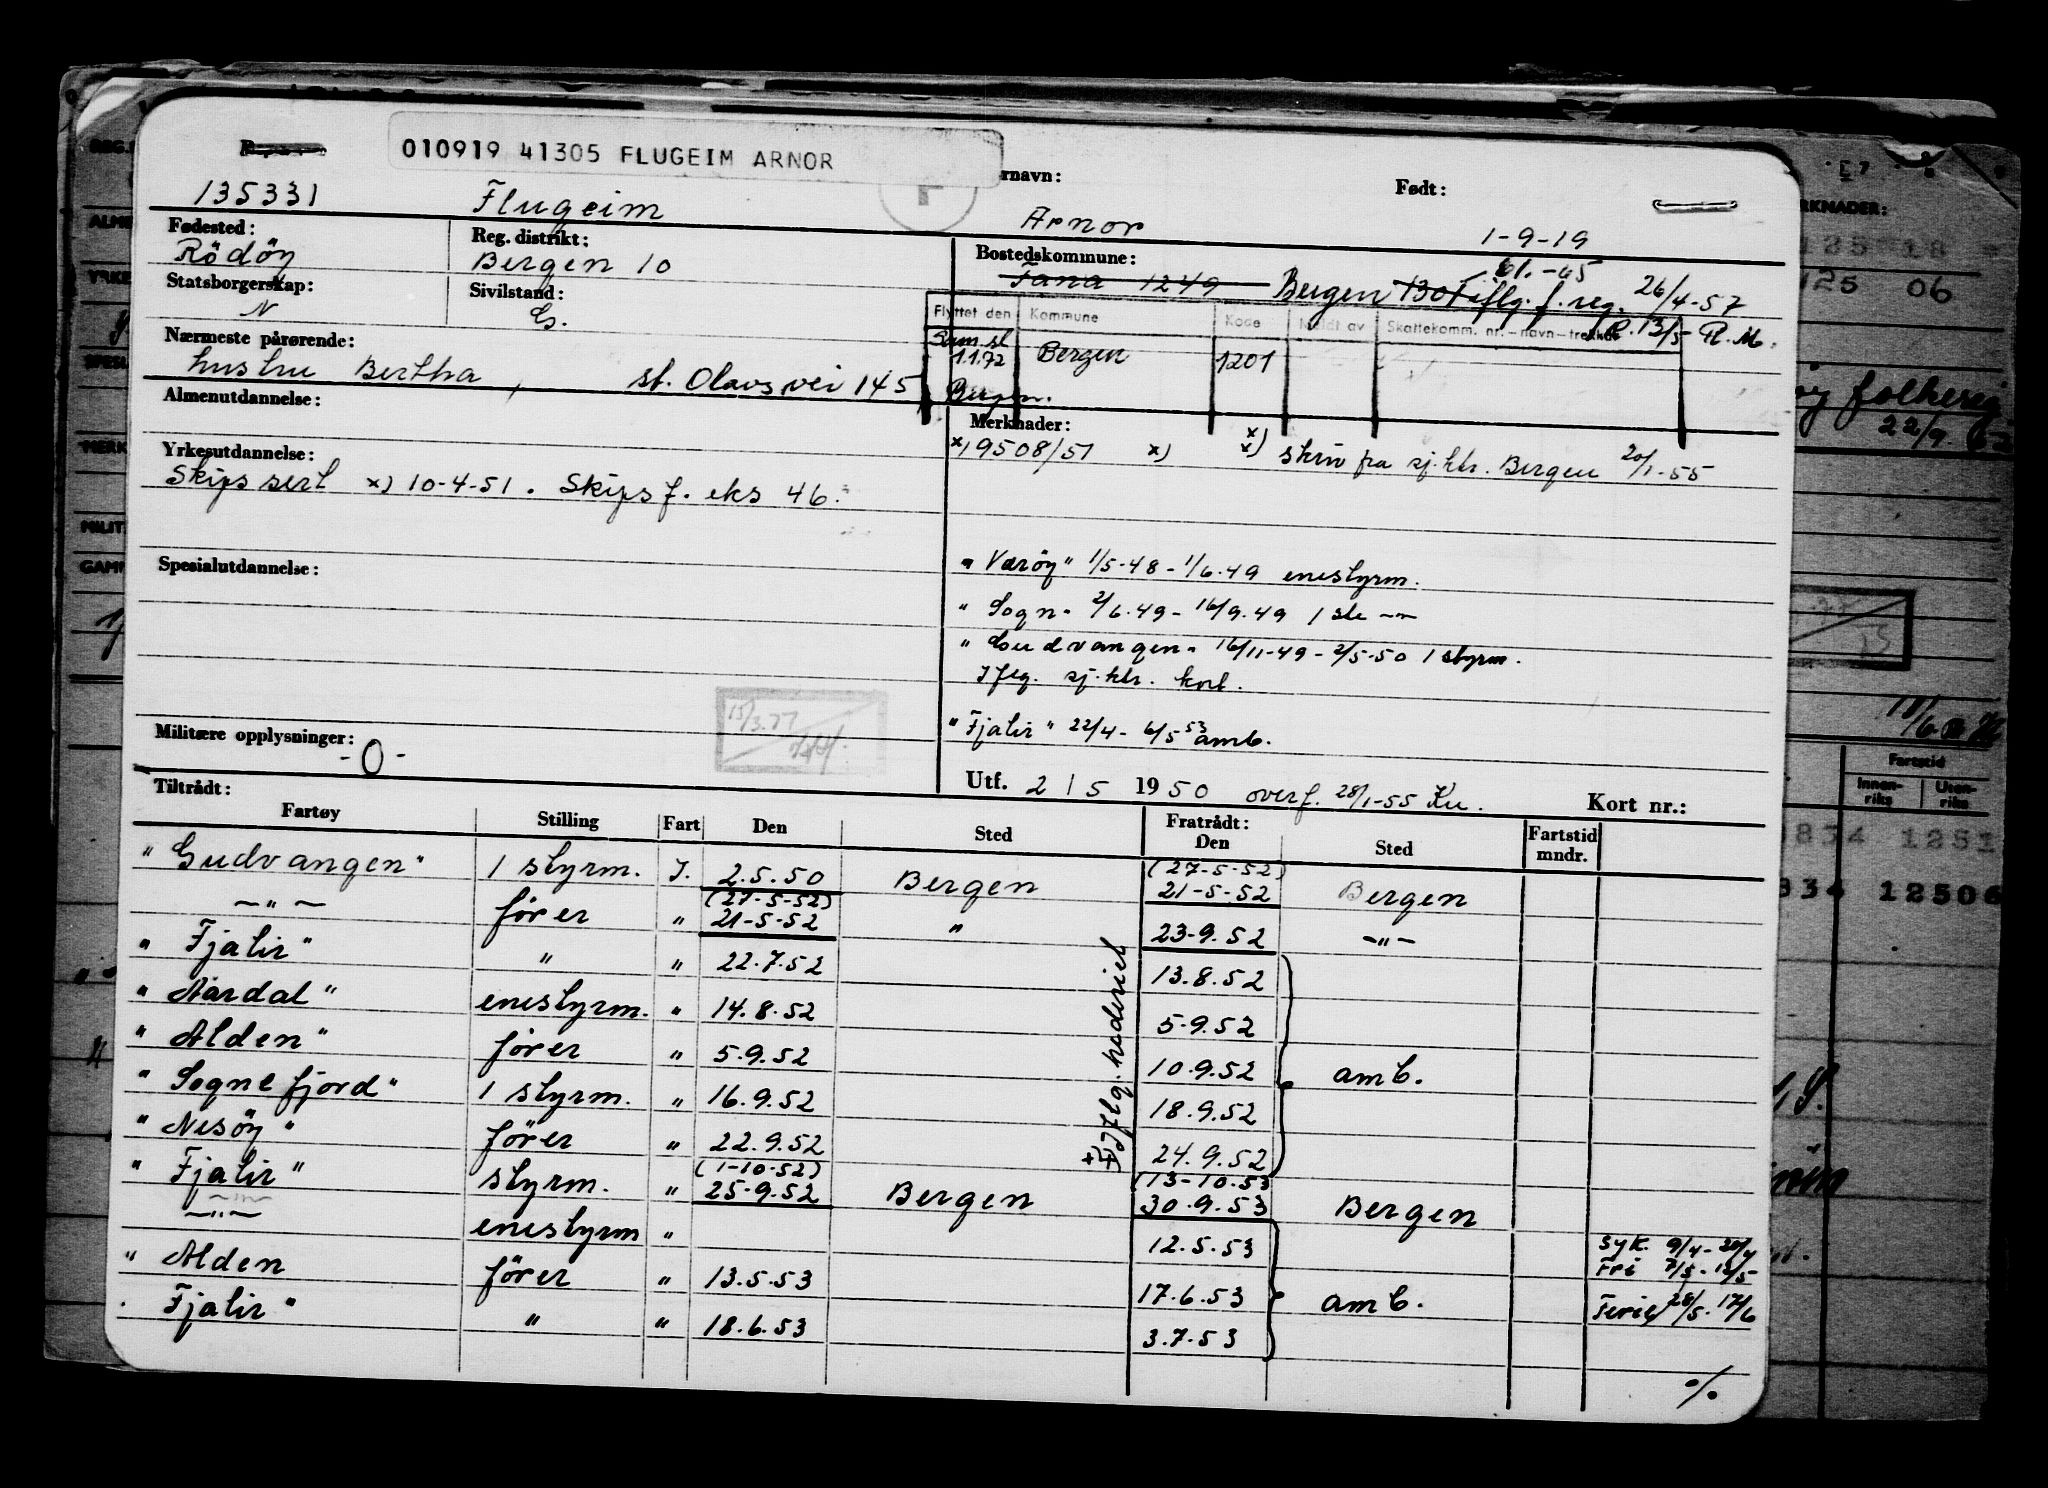 010919 41305 FLUGEIM ARNOR
rnavn:
Født:
135331 Flugeim Arnor 1-9-19
Fødested: Rödöy
Reg. distrikt: Bergen 10
Bostedskommune: Fana 1249 Bergen 1301 iflg. f. reg. 26/4-57
R. 13/5 R.M.
Statsborgerskap: N
Sivilstand: G.
Flyttet den Kommune Kode Meldt av Skattekomm. nr.-navn-trekkode
Sam.sl 1.1.72 Bergen 1201
Nærmeste pårørende:
hustru Bertha, st. Olavs vei 145, Bergen.
Almenutdannelse:
Merknader:
x) 9508/51 x) xx) skriv fra sj.ktr. Bergen 20/1-55
Yrkesutdannelse:
Skipssert x) 10-4-51. Skipsf. eks 46.
Spesialutdannelse:
"Værøy" 1/5-48 - 1/6.49 enestyrm.
"Sogn" 2/6.49 - 16/9.49 1 ste —"—
"Gudvangen" 16/11-49 - 2/5-50 1 styrm.
Iflg. sj.ktr. kort.
15/3.77
"Fjalir" 22/4 - 6/5 53 amb.
Militære opplysninger: -0-
Utf. 2/5 1950 overf. 28/1-55 Ku.
Kort nr.:
Tiltrådt:
Fratrådt:
Fartøy Stilling Fart Den Sted Den Sted Fartstid mndr.
"Gudvangen" 1 styrm. I. 2.5.50 Bergen (27-5-52) 21-5-52 Bergen
—"— förer " (27-5-52) 21-5-52 " 23-9.52 —"—
"Fjalir" " " 22.7.52 13.8.52
"Aardal" enestyrm. " 14.8.52 5.9.52
"Alden" förer " 5.9.52 10.9.52 amb.
"Sognefjord" 1 styrm. " 16.9.52 18.9.52
"Nesöy" förer " 22.9.52 24.9.52
"Fjalir" styrm. " (1-10-52) 25.9.52 Bergen (13-10.53 30.9.53 Bergen
—"— enestyrm " 12.5.53 syk. 9/4-20/4 Fri 7/5-12/5
"Alden förer " 13.5.53 17.6.53 amb. Ferie 28/5-17/6
Fjalir" " " 18.6.53 3.7.53
./.
RKNADER:
22/9
Fartstid
Innen-riks Uten-riks
12506